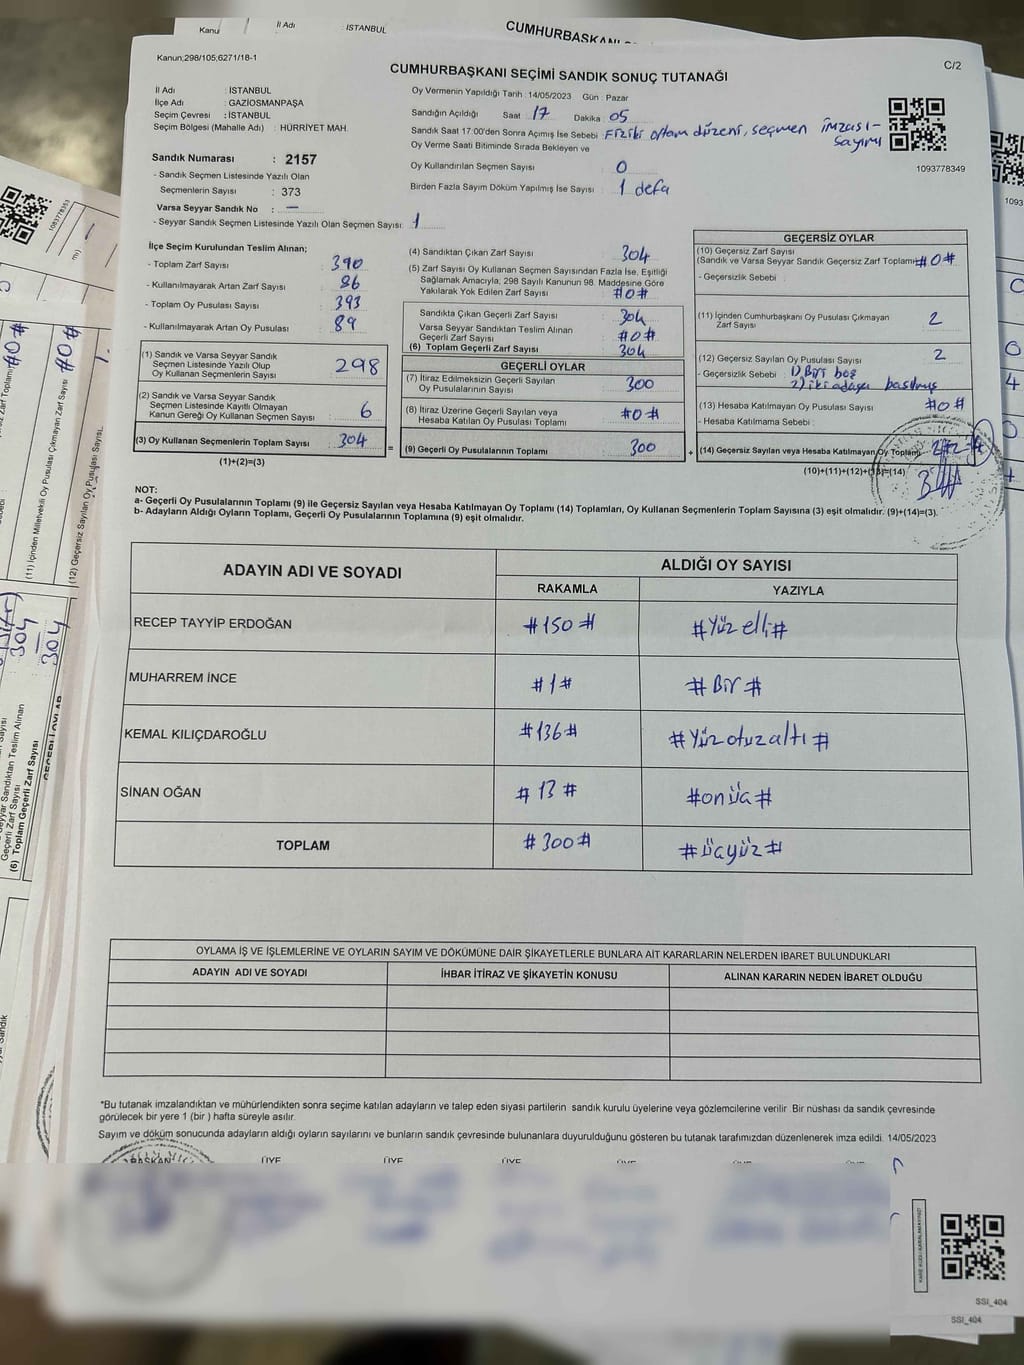 Kanu
İl Adı
İSTANBUL
CUMHURBAŞKANI
Kanun;298/105;6271/18-1
C/2
CUMHURBAŞKANI SEÇİMİ SANDIK SONUÇ TUTANAĞI
İl Adı : İSTANBUL
İlçe Adı : GAZİOSMANPAŞA
Seçim Çevresi : İSTANBUL
Seçim Bölgesi (Mahalle Adı) : HÜRRİYET MAH.
Oy Vermenin Yapıldığı Tarih : 14/05/2023 Gün : Pazar
Sandığın Açıldığı Saat 17 Dakika : 05
Sandık Saat 17:00'den Sonra Açımış İse Sebebi Fiziki ortam düzeni, seçmen imzası-
sayımı
Oy Verme Saati Bitiminde Sırada Bekleyen ve
Oy Kullandırılan Seçmen Sayısı 0
Birden Fazla Sayım Döküm Yapılmış İse Sayısı 1 defa
1093778349
Sandık Numarası : 2157
- Sandık Seçmen Listesinde Yazılı Olan
Seçmenlerin Sayısı : 373
Varsa Seyyar Sandık No : —
- Seyyar Sandık Seçmen Listesinde Yazılı Olan Seçmen Sayısı: 1
İlçe Seçim Kurulundan Teslim Alınan;
- Toplam Zarf Sayısı : 390
- Kullanılmayarak Artan Zarf Sayısı : 86
- Toplam Oy Pusulası Sayısı : 393
- Kullanılmayarak Artan Oy Pusulası : 89
(1) Sandık ve Varsa Seyyar Sandık
Seçmen Listesinde Yazılı Olup
Oy Kullanan Seçmenlerin Sayısı : 298
(2) Sandık ve Varsa Seyyar Sandık
Seçmen Listesinde Kayıtlı Olmayan
Kanun Gereği Oy Kullanan Seçmen Sayısı : 6
(3) Oy Kullanan Seçmenlerin Toplam Sayısı : 304
(1)+(2)=(3)
=
(4) Sandıktan Çıkan Zarf Sayısı : 304
(5) Zarf Sayısı Oy Kullanan Seçmen Sayısından Fazla İse, Eşitliği
Sağlamak Amacıyla; 298 Sayılı Kanunun 98. Maddesine Göre
Yakılarak Yok Edilen Zarf Sayısı : #0#
Sandıkta Çıkan Geçerli Zarf Sayısı : 304
Varsa Seyyar Sandıktan Teslim Alınan
Geçerli Zarf Sayısı : #0#
(6) Toplam Geçerli Zarf Sayısı : 304
GEÇERLİ OYLAR
(7) İtiraz Edilmeksizin Geçerli Sayılan
Oy Pusulasının Sayısı : 300
(8) İtiraz Üzerine Geçerli Sayılan veya
Hesaba Katılan Oy Pusulası Toplamı : #0#
(9) Geçerli Oy Pusulalarının Toplamı : 300
+
GEÇERSİZ OYLAR
(10) Geçersiz Zarf Sayısı
(Sandık ve Varsa Seyyar Sandık Geçersiz Zarf Toplamı) #0#
- Geçersizlik Sebebi :
(11) İçinden Cumhurbaşkanı Oy Pusulası Çıkmayan
Zarf Sayısı : 2
(12) Geçersiz Sayılan Oy Pusulası Sayısı : 2
- Geçersizlik Sebebi 1) Biri boş
2) iki adaya basılmış
(13) Hesaba Katılmayan Oy Pusulası Sayısı : #0#
- Hesaba Katılmama Sebebi :
(14) Geçersiz Sayılan veya Hesaba Katılmayan Oy Toplamı
(10)+(11)+(12)+(13)=(14)
NOT:
a- Geçerli Oy Pusulalarının Toplamı (9) ile Geçersiz Sayılan veya Hesaba Katılmayan Oy Toplamı (14) Toplamları, Oy Kullanan Seçmenlerin Toplam Sayısına (3) eşit olmalıdır. (9)+(14)=(3).
b- Adayların Aldığı Oyların Toplamı, Geçerli Oy Pusulalarının Toplamına (9) eşit olmalıdır.
ADAYIN ADI VE SOYADI
ALDIĞI OY SAYISI
RAKAMLA YAZIYLA
RECEP TAYYİP ERDOĞAN #150# #Yüz elli#
MUHARREM İNCE #1# #Bir#
KEMAL KILIÇDAROĞLU #136# #Yüz otuzaltı#
SİNAN OĞAN #13# #onüç#
TOPLAM #300# #üçyüz#
OYLAMA İŞ VE İŞLEMLERİNE VE OYLARIN SAYIM VE DÖKÜMÜNE DAİR ŞİKAYETLERLE BUNLARA AİT KARARLARIN NELERDEN İBARET BULUNDUKLARI
ADAYIN ADI VE SOYADI İHBAR İTİRAZ VE ŞİKAYETİN KONUSU ALINAN KARARIN NEDEN İBARET OLDUĞU
*Bu tutanak imzalandıktan ve mühürlendikten sonra seçime katılan adayların ve talep eden siyasi partilerin sandık kurulu üyelerine veya gözlemcilerine verilir. Bir nüshası da sandık çevresinde
görülecek bir yere 1 (bir ) hafta süreyle asılır.
Sayım ve döküm sonucunda adayların aldığı oyların sayılarını ve bunların sandık çevresinde bulunanlara duyurulduğunu gösteren bu tutanak tarafımızdan düzenlenerek imza edildi. 14/05/2023
BAŞKAN ÜYE ÜYE ÜYE ÜYE ÜYE ÜYE
SSI_404
SSI_404
1093778353
(11) İçinden Milletvekili Oy Pusulası Çıkmayan Zarf Sayısı #0#
(12) Geçersiz Sayılan Oy Pusulası Sayısı
304
304
(6) Toplam Geçerli Zarf Sayısı
GEÇERLİ OYLAR